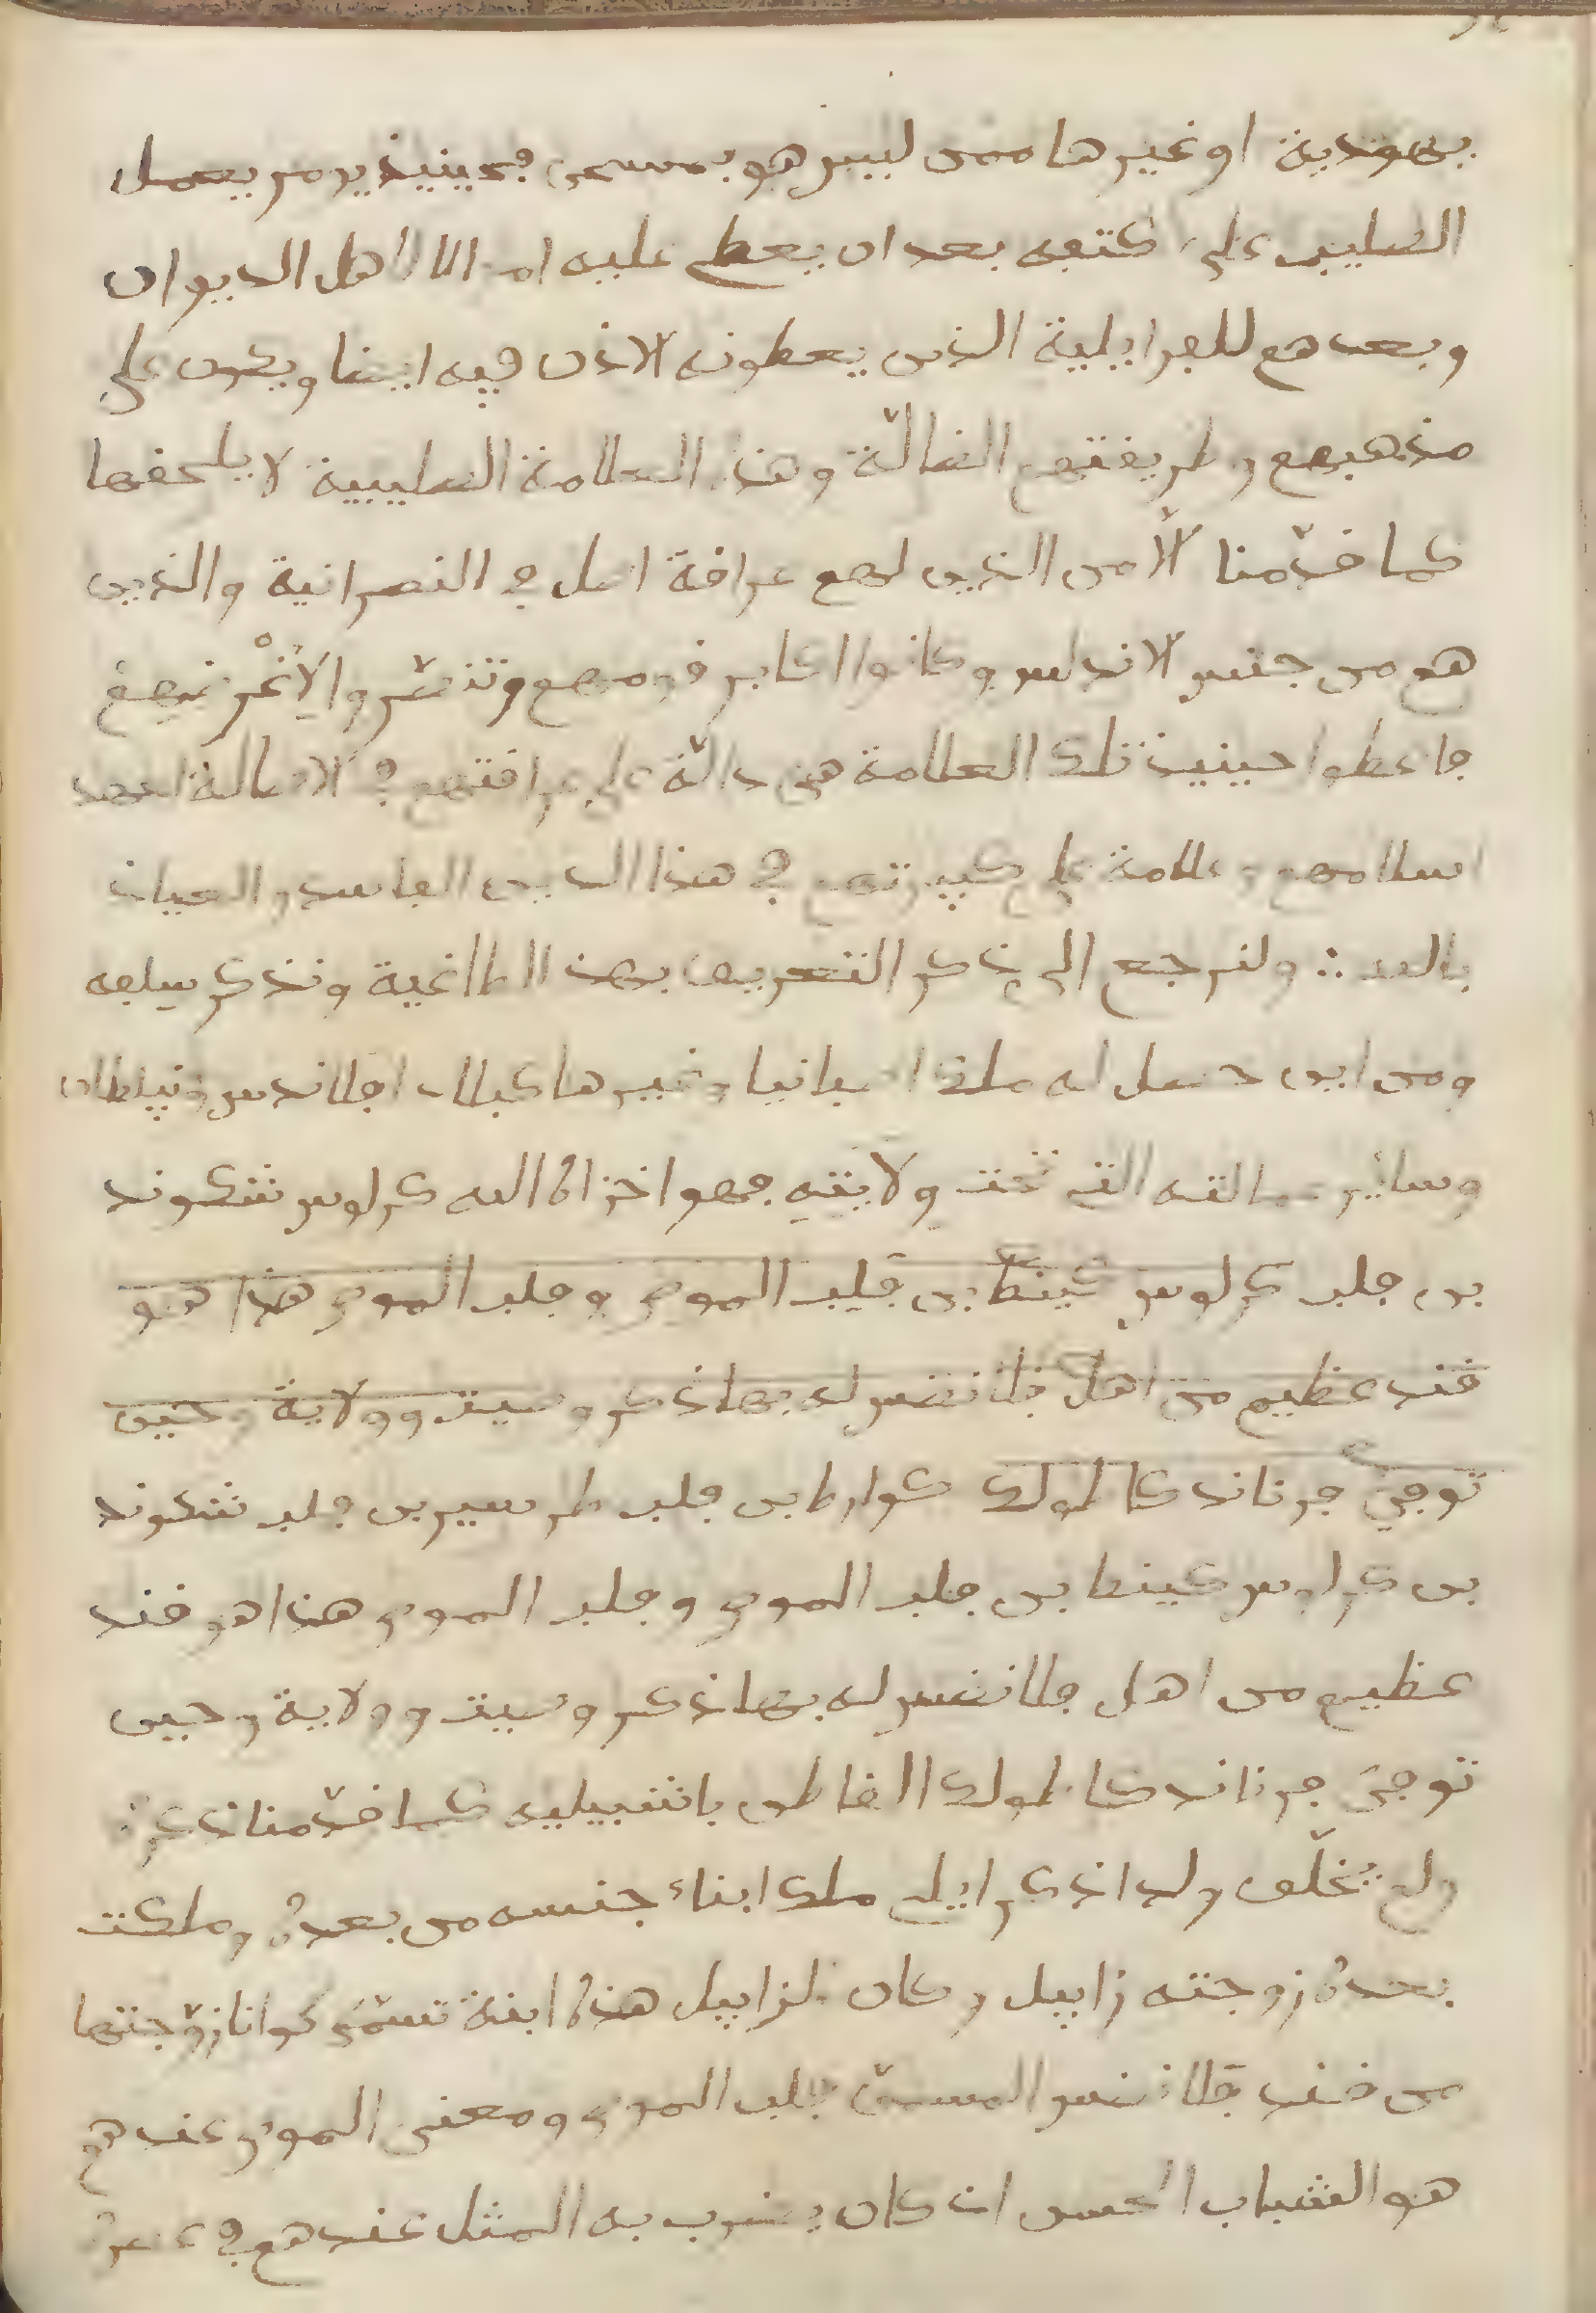 يهودية او غيرها ممن ليس هو بمسمى فحينيذ يومر بعمل
الصليب على كتفه بعد ان يعطى عليه امـوالا لاهل الديوان
وبعدهم للفرايلية الذين يعطونه الاذن فيه ايضا ويكون على
مذهبهم وطريقتهم الضالّة وهذه العلامة الصليبية لا يلحقها
كما قدّمنا الّا من الذين لهم عراقة اصل في النصرانية والذين
هم من جنس الاندلس وكانوا اكابر قومهم وتنصروا لاغراضهم
فاعطوا حينيذ تلك العلامة هي دالّة على عراقتهم في الاصالة بعهد
اسلامهم وعلامة على كبيرتهم في هذا الدين الفاسد والعياذ
بالله ؞ ولنرجع الى ذكر التعريف بهذه الطاغية ونذكر سلفه
ومن اين حصل له ملك اصبانيا وغيرها كبلاد افلاندس ونپلطان
وساير عمالته التي تحت ولايته فهو اخزاه الله كرلوس شكوند
بن فلب كرلوس كينط بن فليب الموص وفلب الموص هذا هو
قند عظيم من اهل فلانضس له بها ذكر وصيت وولاية وحين
توفي فرناند كاطولك كوارط بن فلب طرسير بن فلب شكوند
بن كرلوس كينط بن فلب الموص وفلب الموص هذا هو قند
عظيم من اهل فلانضس له بها ذكر وصيت وولاية وحين
توفى فرناند كاطولك القاطن باشبيليه كما قدّمنا ذكره
ولم يُخلّف ولدا ذكرا يلي ملك ابناء جنسه من بعده وملكت
بعده زوجته زابيل وكان لزابيل هذه ابنة تسمّى كوانا زوّجتها
من قند فلانضس المسمّى بفلب الموص ومعنى الموص عندهم
هو الشباب الحسن اذ كان يضرب به المثل عندهم في عصره